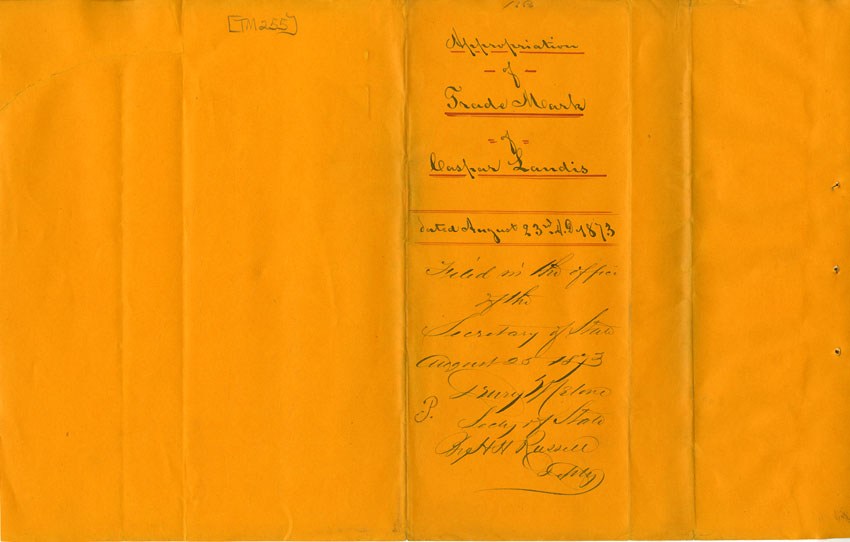 [TM255]
Appropriation
of
Trade Mark
of
Caspar Landis
dated August 23d. A.D. 1873
Filed in the office
of the
Secretary of State
August 25 1873
Drury Melone
P.
Secty of State
By H H Russell
Depty